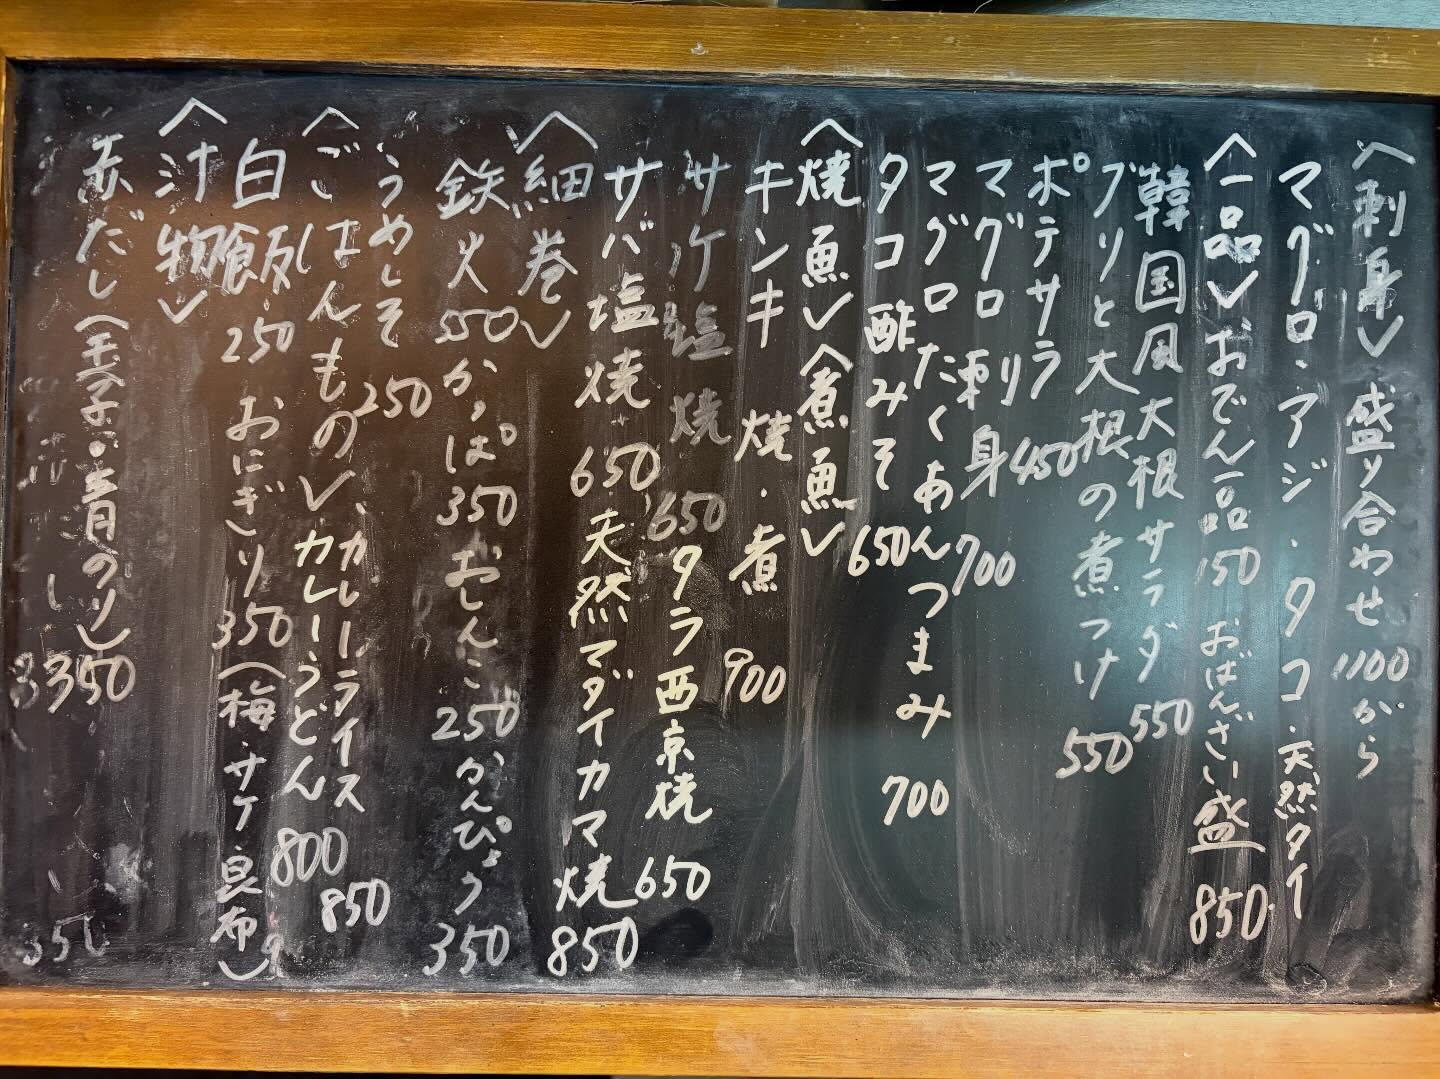 〈刺身〉盛り合わせ 1100から
マグロ・アジ・タコ・天然タイ
〈一品〉おでん一品 150 おばんざい盛 850
韓国風大根サラダ 550
ブリと大根の煮つけ 550
ポテサラ 450
マグロ刺身 700
マグロたくあんつまみ 700
タコ酢みそ 650
〈焼魚〉〈煮魚〉
キンキ 焼・煮 900
サケ塩焼 650 タラ西京焼 650
サバ塩焼 650 天然マダイカマ焼 850
〈細巻〉
鉄火 550 かっぱ 350 おしんこ 250 かんぴょう 350
うめしそ 250
〈ごはんもの〉カレーライス 850
カレーうどん 800
白飯 250 おにぎり 350 (梅・サケ・昆布)
〈汁物〉
赤だし(玉子・青のり) 350
350